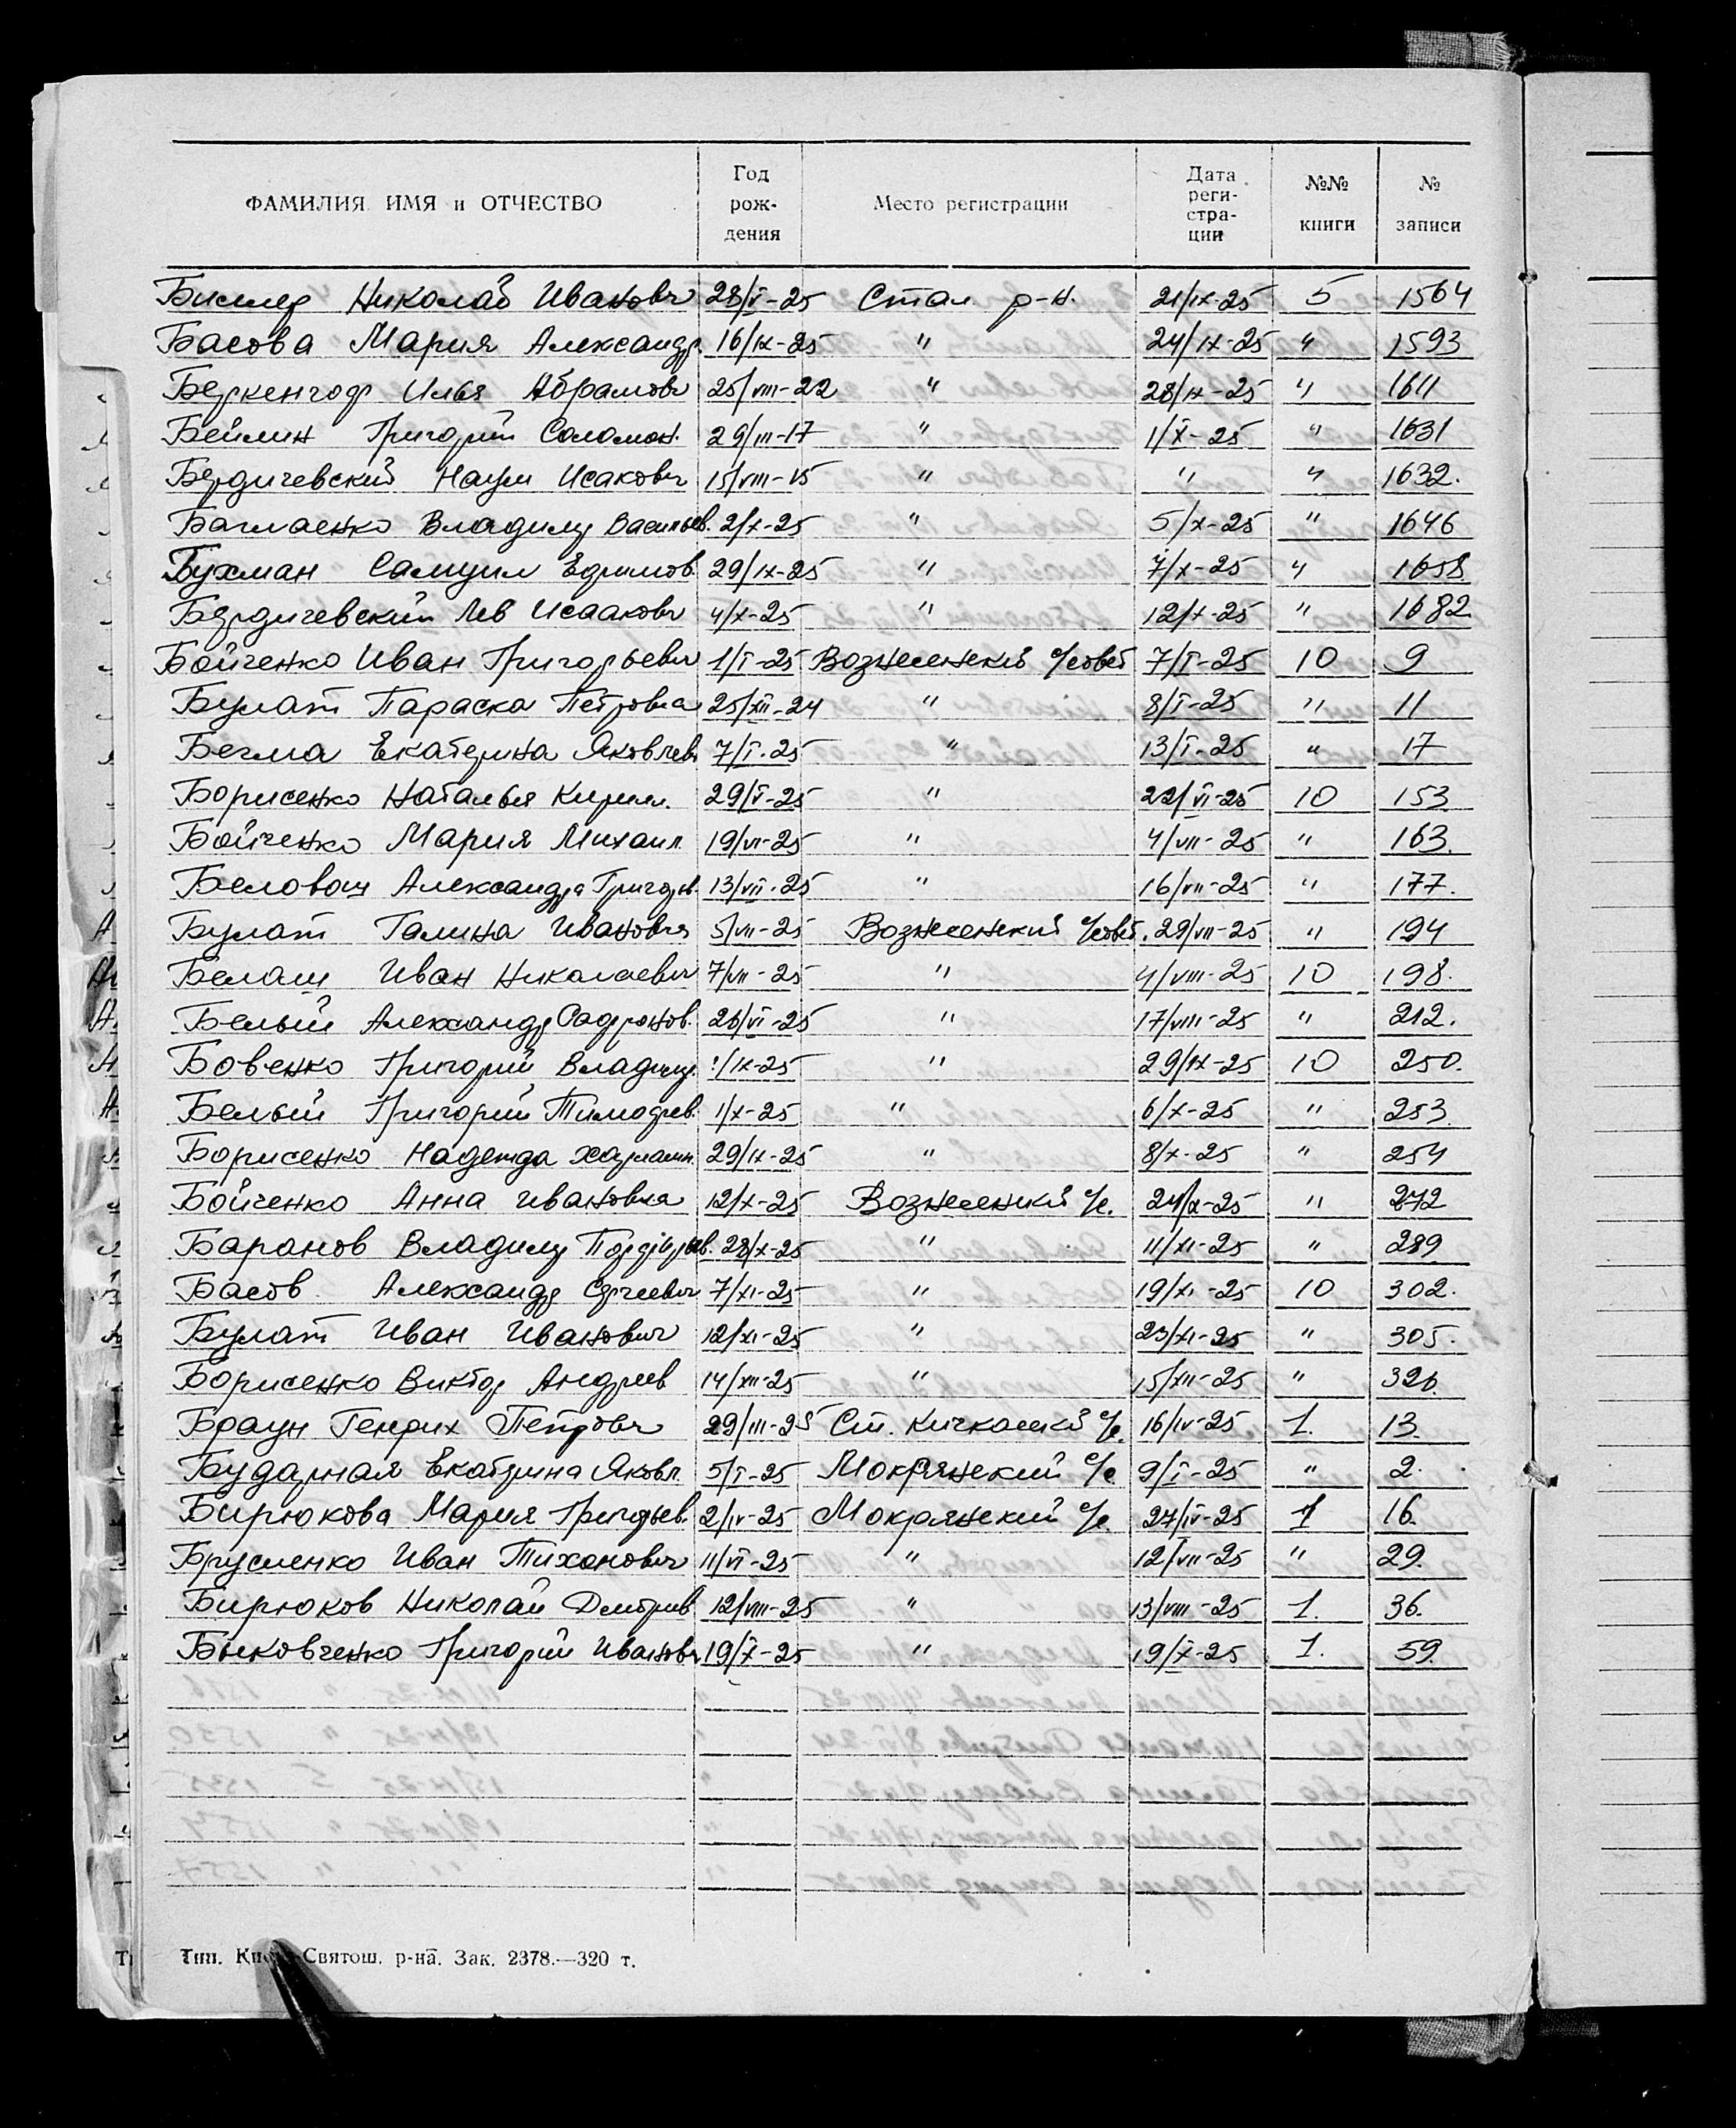 ФАМИЛИЯ ИМЯ и ОТЧЕСТВО Год рож-дения Место регистрации Дата реги-стра-ции №№ книги № записи
Николай Иванович 28/V-25 Стал р-н. 21/IX-25 5 1564
Басова Мария Александр. 16/IX-25 " 24/IX-25 " 1593
Беркенгоф Илья Абрамович 25/VIII-22 " 28/IX-25 " 1611
Бейлин Григорий Соломон. 29/III-17 " 1/X-25 " 1631
Бердичевский Наум Исакович 15/VIII-15 " " " 1632.
Владимир Васильев. 2/X-25 " 5/X-25 " 1646
Бухман Самуил Ефимов 29/IX-25 " 7/X-25 " 1658
Бердичевский Лев Исаакович 4/X-25 " 12/X-25 " 1682
Бойченко Иван Григорьевич 1/I-25 Вознесенский с/совет 7/I-25 10 9
Булат Параска Петровна 25/XII-24 " 8/I-25 " 11
Бегма Екатерина Яковлев 7/I-25 " 13/I-25 " 17
Борисенко Наталья Кирилл. 29/V-25 " 22/VI-25 10 153
Бойченко Мария Михаил. 19/VI-25 " 4/VII-25 " 163.
Александра Григорьев. 13/VII-25 " 16/VII-25 " 177.
Булат Галина Ивановна 5/VII-25 Вознесенский с/совет. 29/VII-25 " 194
Белаш Иван Николаевич 7/VII-25 " 4/VIII-25 10 198.
Белый Александр Сафронов. 26/VI-25 " 17/VIII-25 " 212.
Бовенко Григорий Владимир. /IX-25 " 29/IX-25 10 250.
Белый Григорий Тимофеев. 1/X-25 " 6/X-25 " 253
Борисенко Надежда Харламп. 29/IX-25 " 8/X-25 " 254
Бойченко Анна Ивановна 12/X-25 Вознесенский с/с. 24/X-25 " 272
Баранов Владимир Порфирьев. 28/X-25 " 11/XI-25 " 289
Басов Александр Сергеевич 7/XI-25 " 19/XI-25 10 302.
Булат Иван Иванович 12/XI-25 " 23/XI-25 " 305.
Борисенко Виктор Андреев 14/XII-25 " 15/XII-25 " 326.
Браун Генрих Петрович 29/III-25 Ст. Кичкасский с/с. 16/IV-25 1. 13.
Бударная Екатерина Яковл. 5/I-25 Мокрянский с/с 9/I-25 " 2.
Бирюкова Мария Григорьев. 2/IV-25 Мокрянский с/с. 27/IV-25 1 16.
Брусленко Иван Тихонович 11/VI-25 " 12/VII-25 " 29.
Бирюков Николай Дмитриев 12/VIII-25 " 13/VIII-25 1. 36.
Быковченко Григорий Иванович 19/X-25 " 19/X-25 1. 59.
Тип. Святош. р-на. Зак. 2378.—320 т.